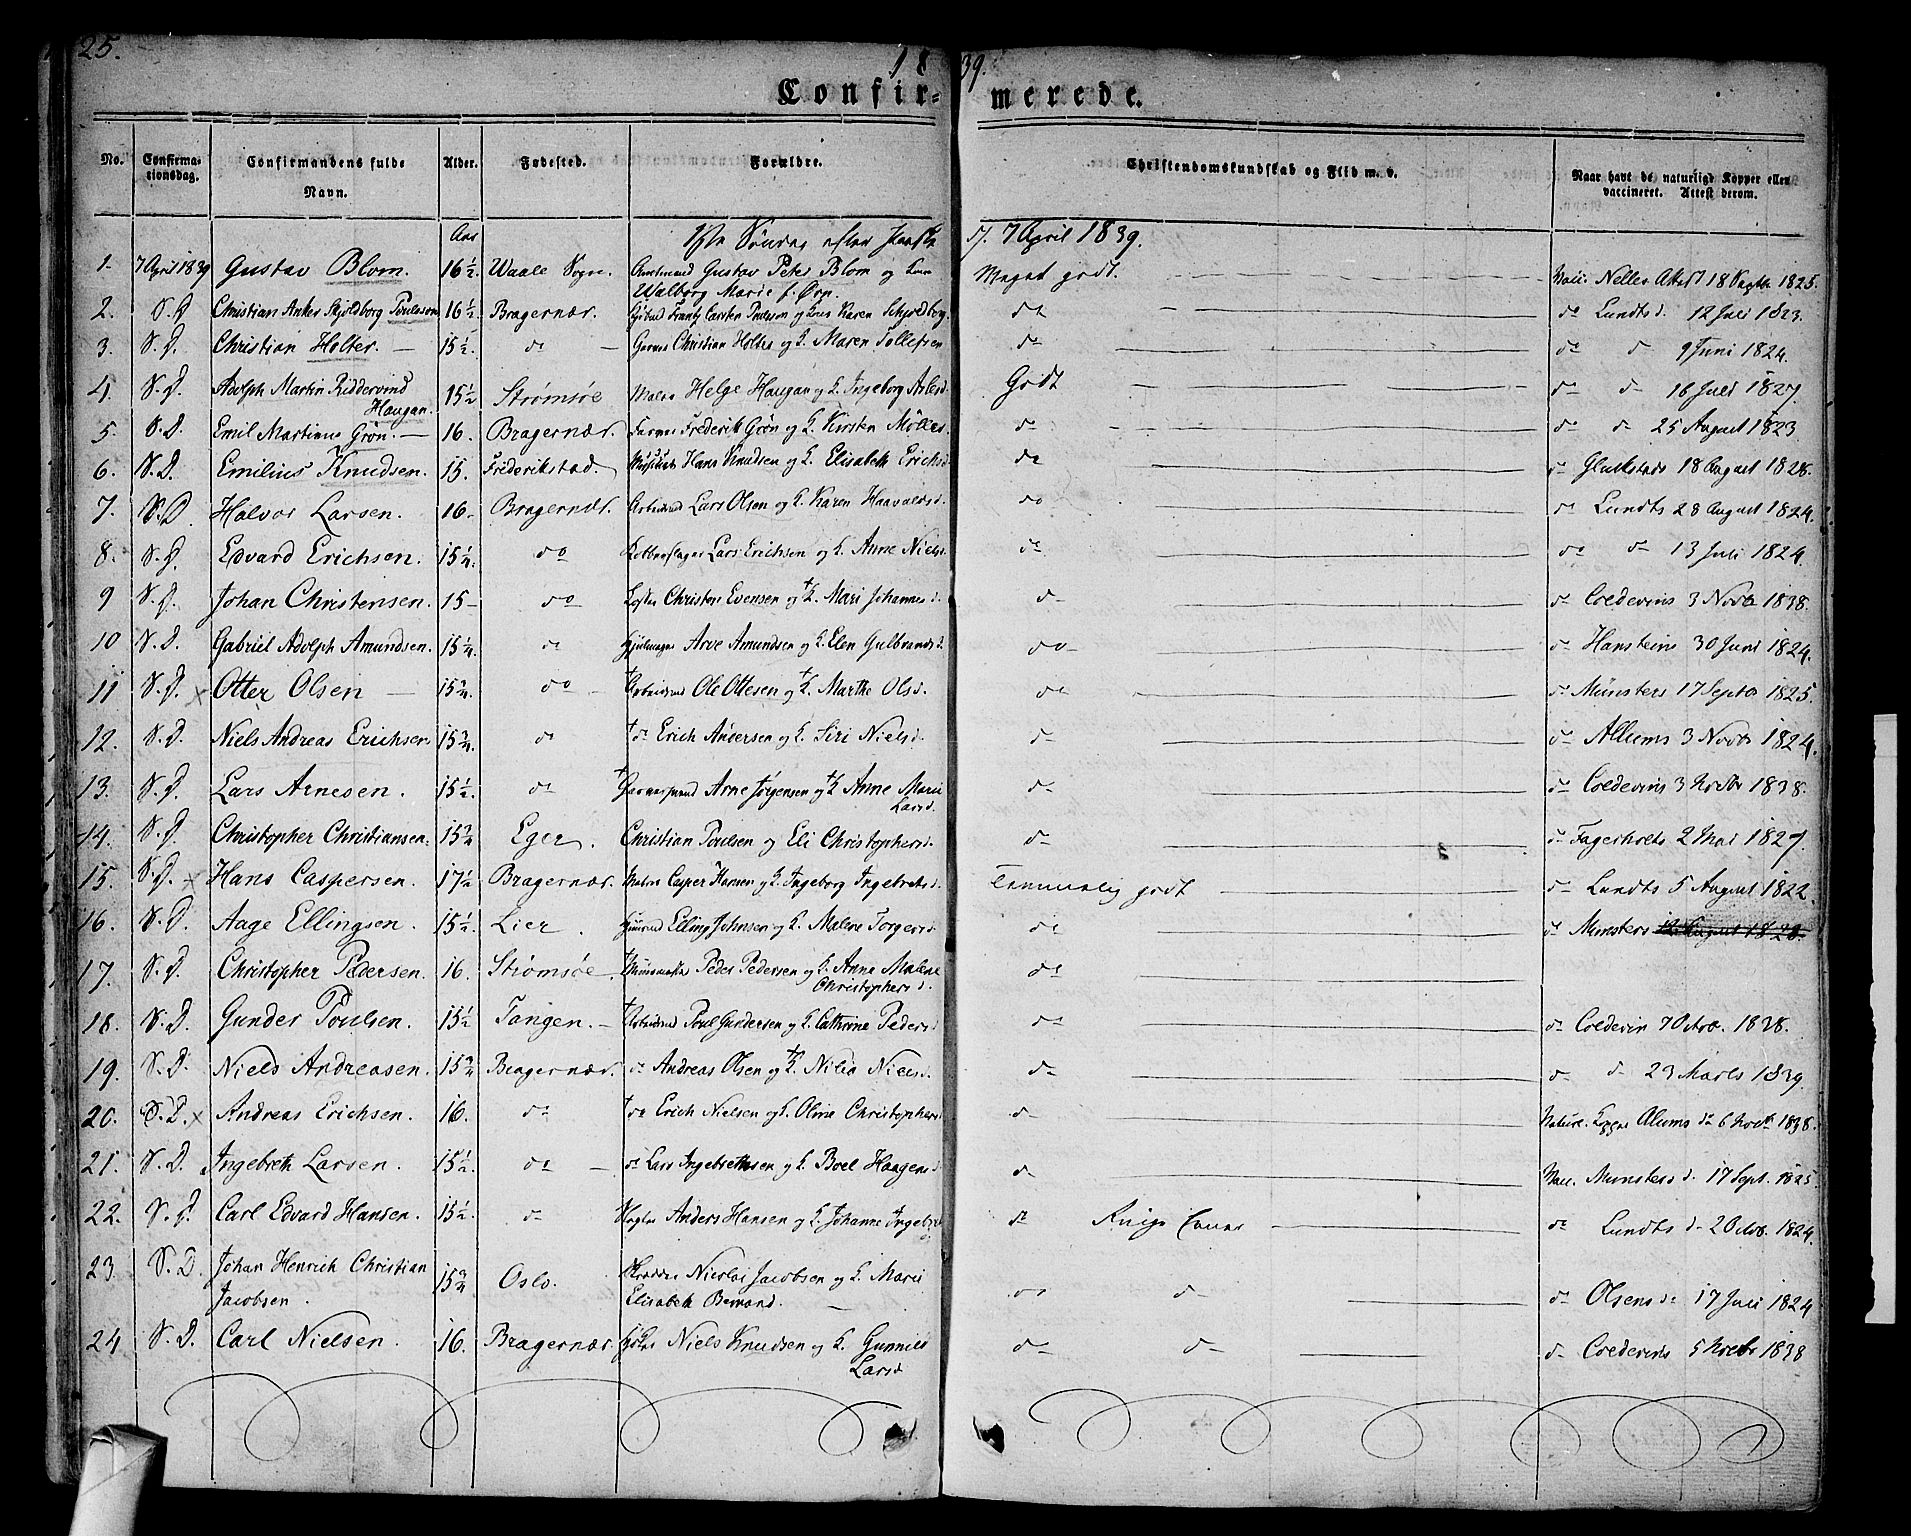 25.
18 39.
Confir= merede.
No. Confirma- tionsdag. Confirmandens fulde Navn. Alder. Fødested. Forældre. Christendomskundskab og Flid m. v. Naar havt de naturlige Kopper eller vaccineret. Attest derom.
Aar 1ste Søndag efter Paaske d. 7 April 1839.
1. 7 April 1839 Gustav Blom. 16 1/2. Waale Sogn. Amtmand Gustav Peter Blom og Meget godt. Vacc. Neller Attest 18 1825.
Walborg Marie f. Ørn
2. S. D. Christian Anker Skjoldborg Poulsson 16 1/2. Bragernæs. Frantz Carsten og Karen Schjoldborg do do Lundts d. 12 Juli 1823.
3. S. D. Christian Holter. — 15 1/2. do — Christian Holter og K. Maren Tollefsen do do d 9 Juni 1824.
4. S. D. Adolph Martin Riddervind 15 1/2 Strømsøe Maler Helge Haugan og K. Ingeborg Godt do d 16 Juli 1827.
Haugan.
5. S. D. Emil Martinus Grøn. — 16. Bragernæs. Frederik Grøn og K. Kirsten Möller do do d 25 August 1823
6. S. D. Emilius Knudsen. 15. Frederikstad. Hans Knudsen og K. Elisabeth Erichsd. do do Glückstads 18 August 1828.
7. S. D. Halvor Larsen. 16. Bragernæs. Arbeidsmd Lars Olsen og K. Karen Haavaldsd. do do Lundts 28 August 1824.
8. S. D. Edvard Erichsen. 15 1/4. do Lars Erichsen og K. Anne Nielsd. do do do 13 Juli 1824.
9 S. D. Johan Christensen. 15 — do Christen Evensen og †K. Mari Johannesd. do do Coldevins 3 Novb 1838.
10 S. D. Gabriel Adolph Amundsen. 15 1/4. do Hjulmager Arve Amundsen og K. Elen Gulbrandsd. do do Hansteins 30 Juni 1824.
11 S. D. × Otter Olsen — 15 3/4. do — Arbeidsmd Ole Ottesen og †K. Marthe Olsd. do do Münsters 17 Septb 1825.
12. S. D. Niels Andreas Erichsen. 15 3/4. do † do Erich Andersen og K. Siri Nielsd. do do Allums 3 Novbr 1824.
13. S. D. Lars Arnesen. 15 1/2. do † Arne Jørgensen og †K. Anne Marie do do Coldevins 3 Novbr 1838.
Larsd.
14. S. D. Christopher Christiansen. 15 3/4 Eger. Christian Poulsen og Eli Christophersd. do do Fagerholts 2 Mai 1827.
15. S. D. × Hans Caspersen. 17 1/2 Bragernæs. Casper Hansen og K. Ingeborg Ingebretsd. Temmelig godt do Lundts 5 August 1822.
16. S. D. Aage Ellingsen. 15 1/2. Lier. Elling Johnsen og K. Malene Torgersd. do do Münsters 12 August 1828.
17. S. D. Christopher Pedersen. 16. Strømsøe. † Peder Pedersen og K. Anne Malene do
Christophersd.
18. S. D. Gunder Poulsen. 15 1/2 Tangen. — † Arbeidsmd Poul Gundersen og K. Cathrine Pedersd. do do Coldevin 7 Octbr. 1838.
19. S. D. Niels Andreasen. 15 3/4 Bragernæs. do Andreas Olsen og †K. Nilia Nielsd. do do do 23 Marts 1839.
20. S. D. × Andreas Erichsen. 16. do † do Erich Nielsen og K. Oline Christophersd. do Naturl. Kopper Alums do 6 Novbr 1838.
21. S. D. Ingebreth Larsen. 15 1/2. do — do Lars Ingebrethsen og K. Boel Haagensd. do Vacc. Münsters d. 17 Sept. 1825
22. S. D. Carl Edvard Hansen. 15 1/2. do Anders Hansen og K. Johanne Ingebr do do Lundts d. 2 Octob. 1824.
23 S. D. Johan Henrich Christian 15 3/4 Oslo. Skrædder Nicolai Jacobsen og K. Marie do do do Olsens do 17 Juli 1824
Jacobsen. Elisabeth
24 S. D. Carl Nielsen. 16. Bragernæs. Niels Knudsen og K. Gunnild do do do Coldevins 5 Novbr 1838
Larsd